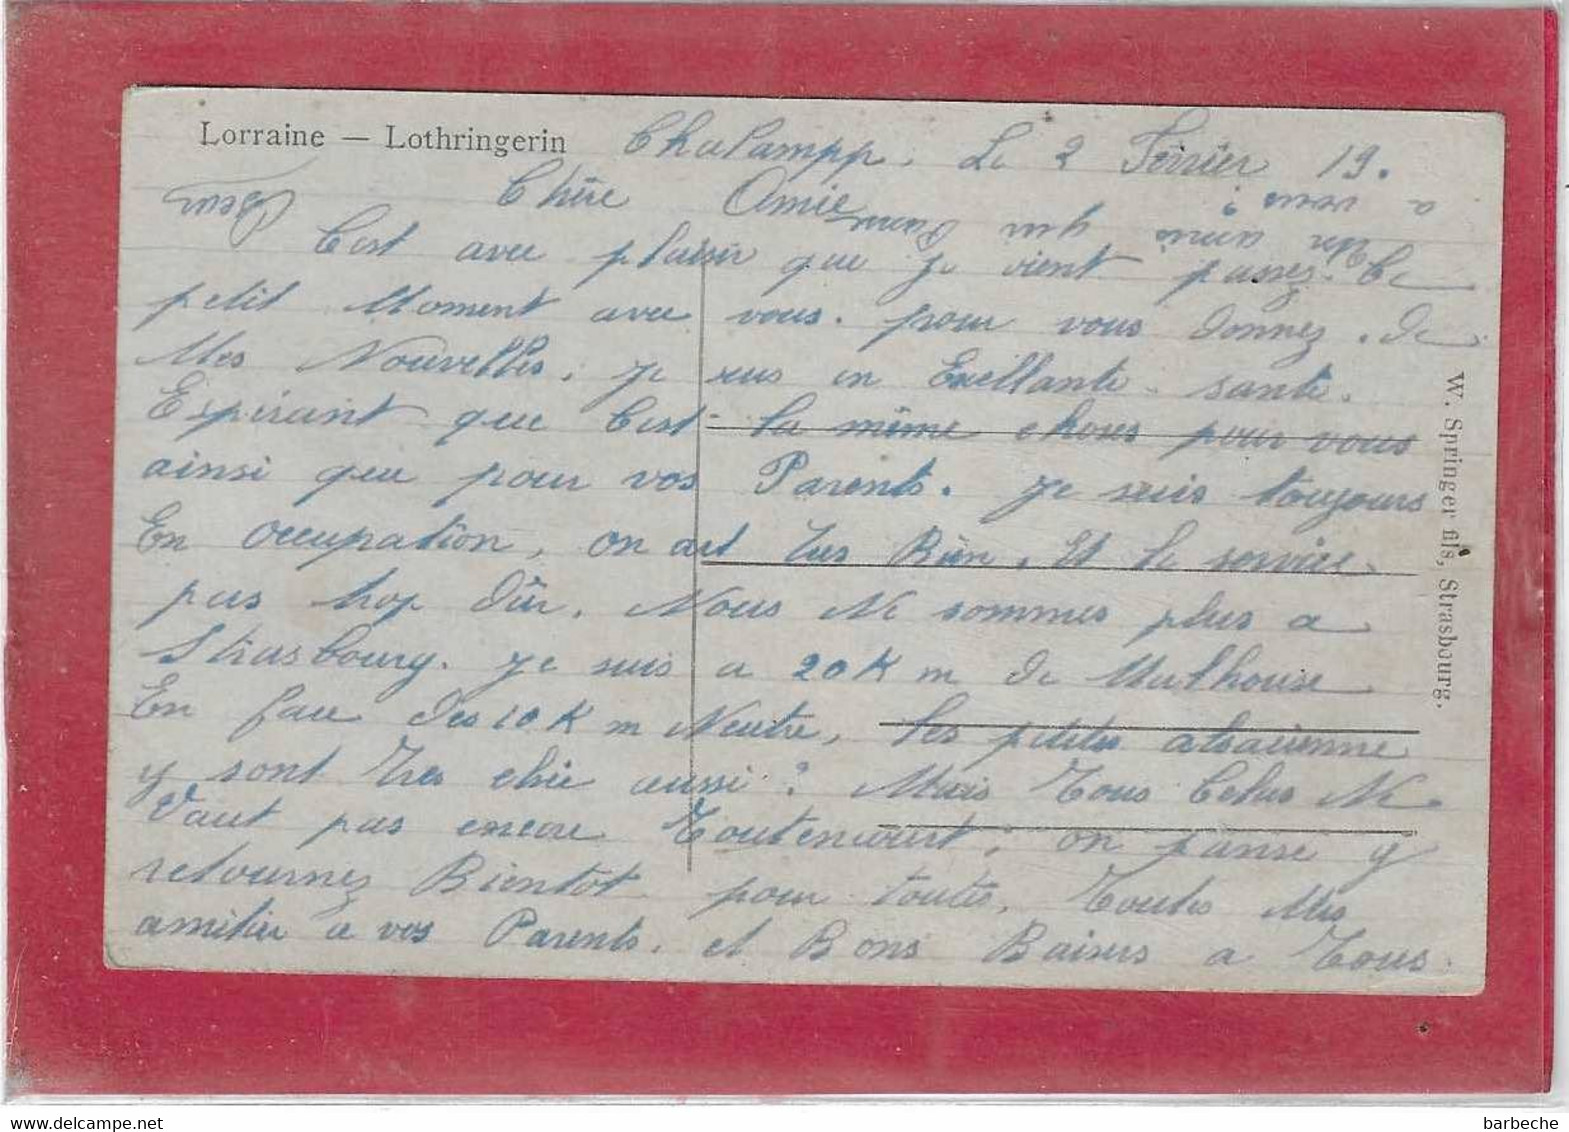 Lorraine — Lothringerin
Chalampp. Le 2 Février 19.
Chère Amie
C'est avec plaisir que je vient passez Ce
petit Moment avec vous. pour vous donnez. de
Mes Nouvelles. je sus en Exellante santé.
Espérant que C'est la même choses pour vous
ainsi que pour vos Parents. je suis toujours
En Occupation, on est très Bien. Et le service
pas trop dûr. Nous Ne sommes plus a
Strasbourg. je suis a 20 K m de Mulhouse
En face des 10 K m Neutre, les petites alsacienne
y sont très chic aussi? Mais Tous Celas Ne
Vaut pas encore Toutencourt; on panse y
retournez Bientôt pour toutes. Toutes Mes
amitier a vos Parents. et Bons Baisers a Tous.
Un amis qui
a vous?
W. Springer fils, Strasbourg.
barbeche